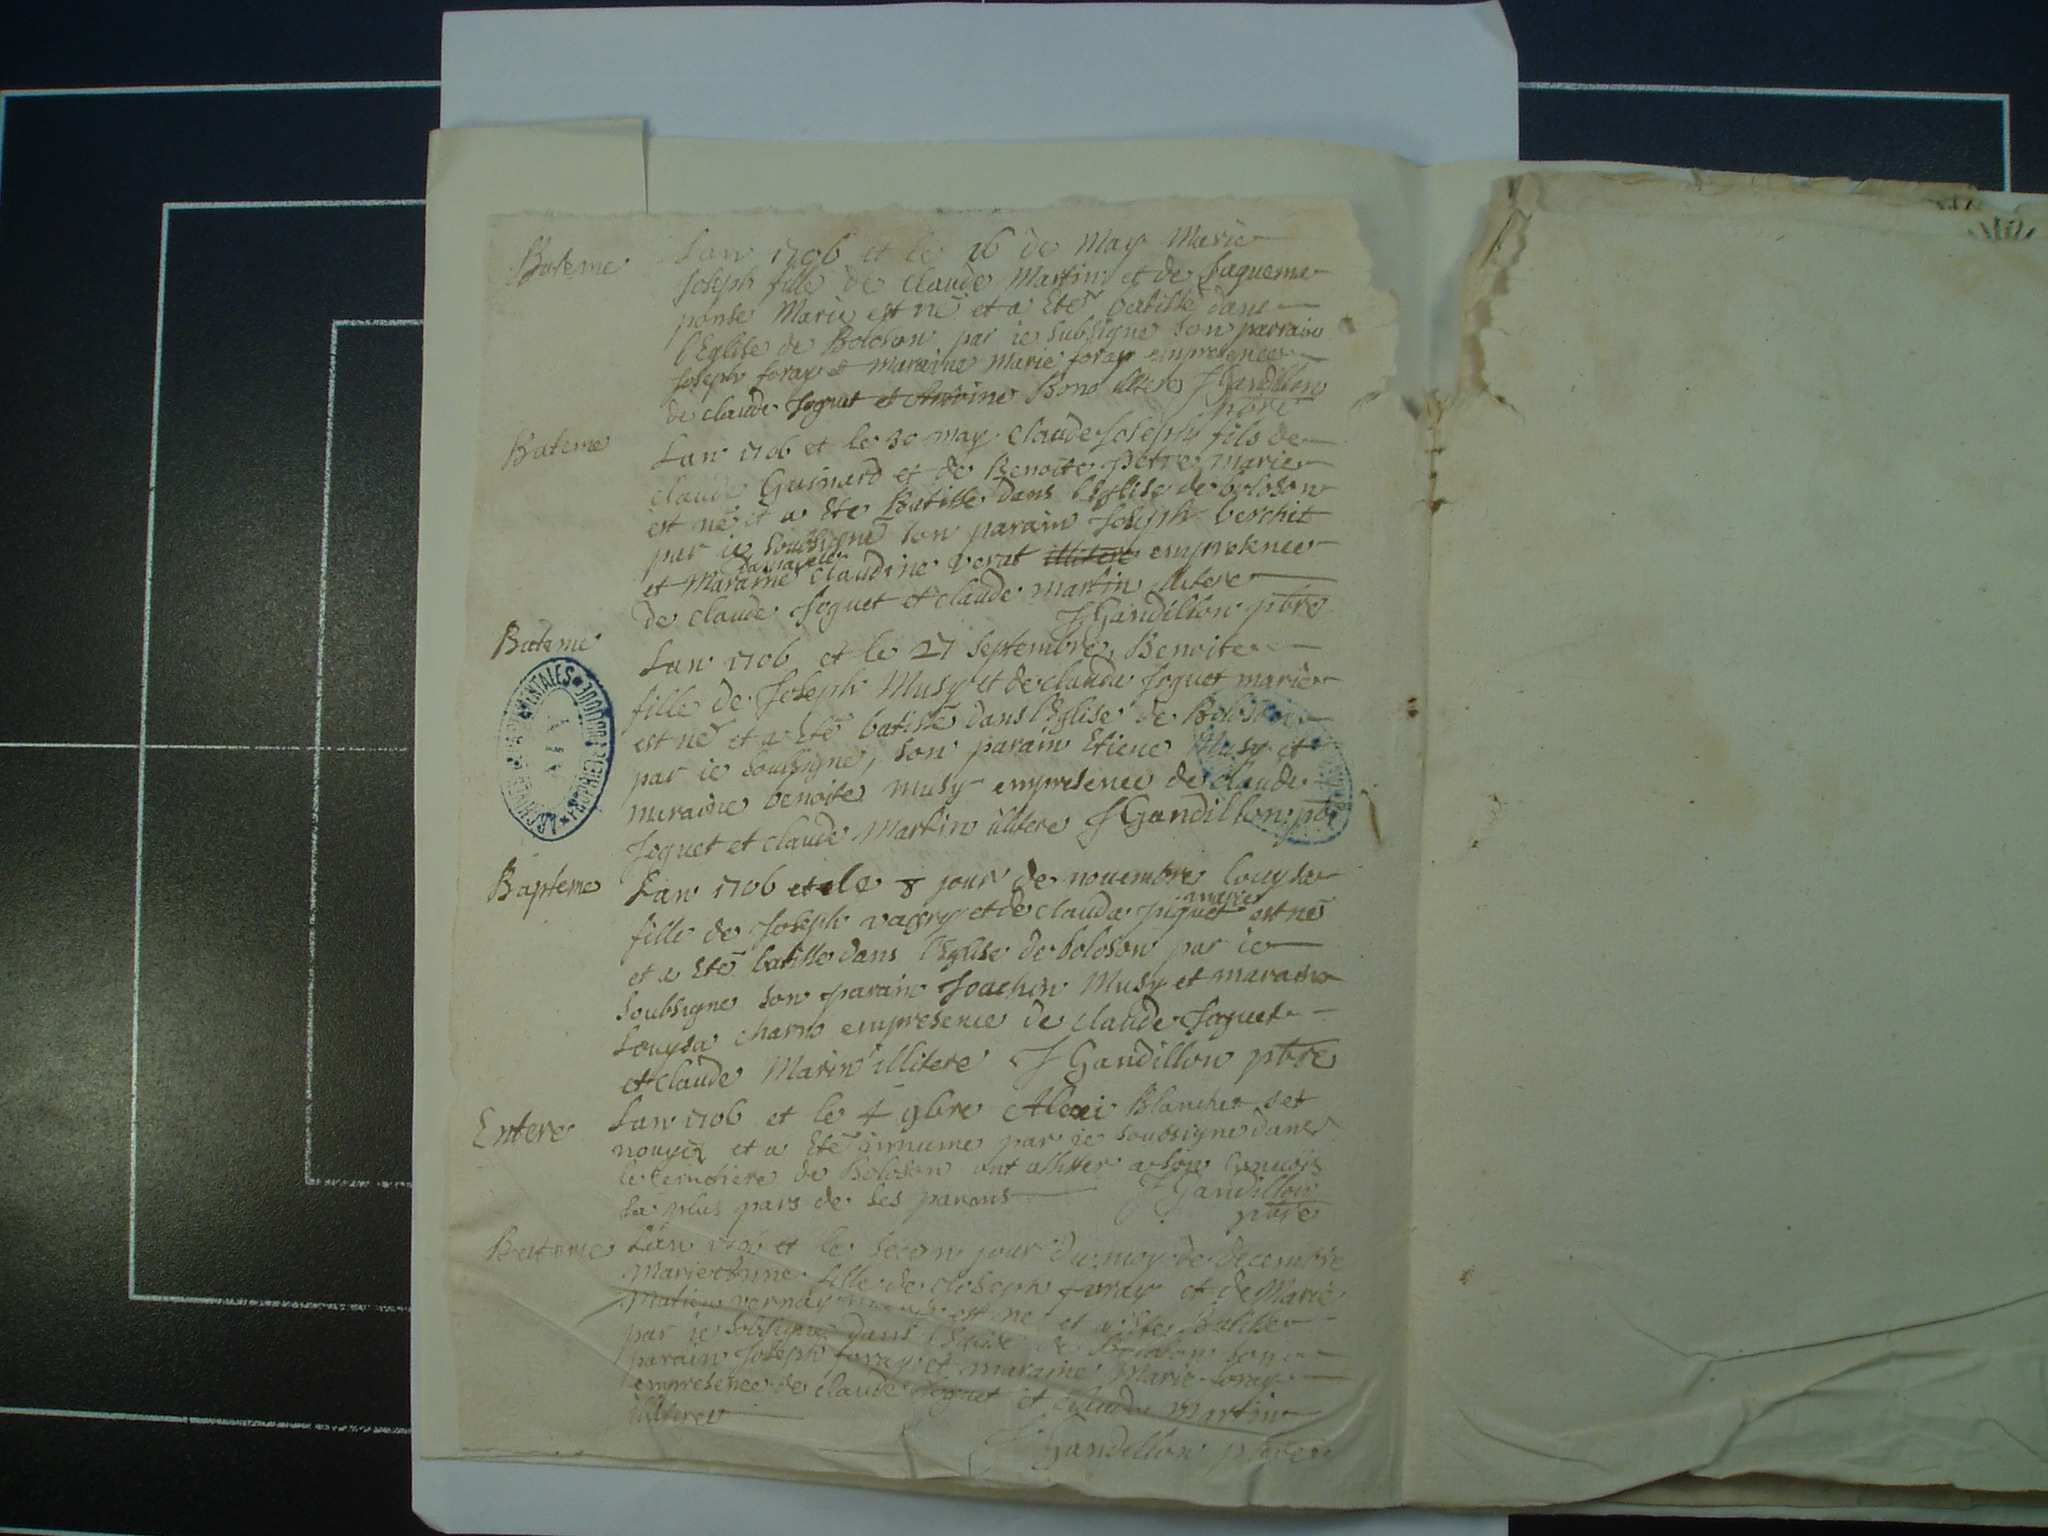 Bateme
Lan 1706 et le 26 de May Marie
Joseph fille de Claude Martin et de Jaqueme
ponse Marie est né et a Eté batisse dans
l'Eglise de Boloson par ie subsigne son parrain
Joseph foray et Maraine Marie foray empresence
de claude Joguet et Antoine illitere J Gandillon
pbre
Bateme
Lan 1706 et le 30 may claude Joseph fils de
claude Guinard et de Benoite petre marie
est né et a Ete Batisse dans l'Eglise de boloson
par ie soubsigné son parain Joseph berchet
et Maraine claudine verat illitere empresence
de claude Joguet et claude martin illitere
J Gandillon pbre
Bateme
Lan 1706 et le 27 septembre, Benoite
fille de Joseph Musy et de claude Joguet marie
est né et a Eté batisse dans l'Eglise de Boloson
par ie soubsigne, son parain Etiene Musy et
maraine benoite musy empresence de claude
Joguet et claude Martin illitere J Gandillon pbre
ARCHIVES DEPARTEMENTALES
* AIN *
Bapteme
Lan 1706 et le 8 jour de nouembre louysa
fille de Joseph vassy et de claude piquet maries est né
et a Eté batisse dans l'Eglise de boloson par ie
soubsigne son parain Joachin Musy et maraine
Louysa charn empresence de claude Joguet
et claude Marin illitere J Gandillon pbre
Entere
Lan 1706 et le 4 9bre Alexi Blanchet set
nouyez et a Eté innume par ie soubsigne dans
le cemetiere de Boloson ont assister a son conuois
la plus pars de ses parans J Gandillon
pbre
Bateme
Lan 1706 et le secon jour du moy de decembre
Marie Anne fille de Joseph foray et de Marie
vernay est né et a Ete Batisse
par ie subsigne dans l'Eglise de Boloson son
parain Joseph foray et maraine Marie foray
empresence de claude Joguet et claude Martin
illitere
J Gandillon pbre